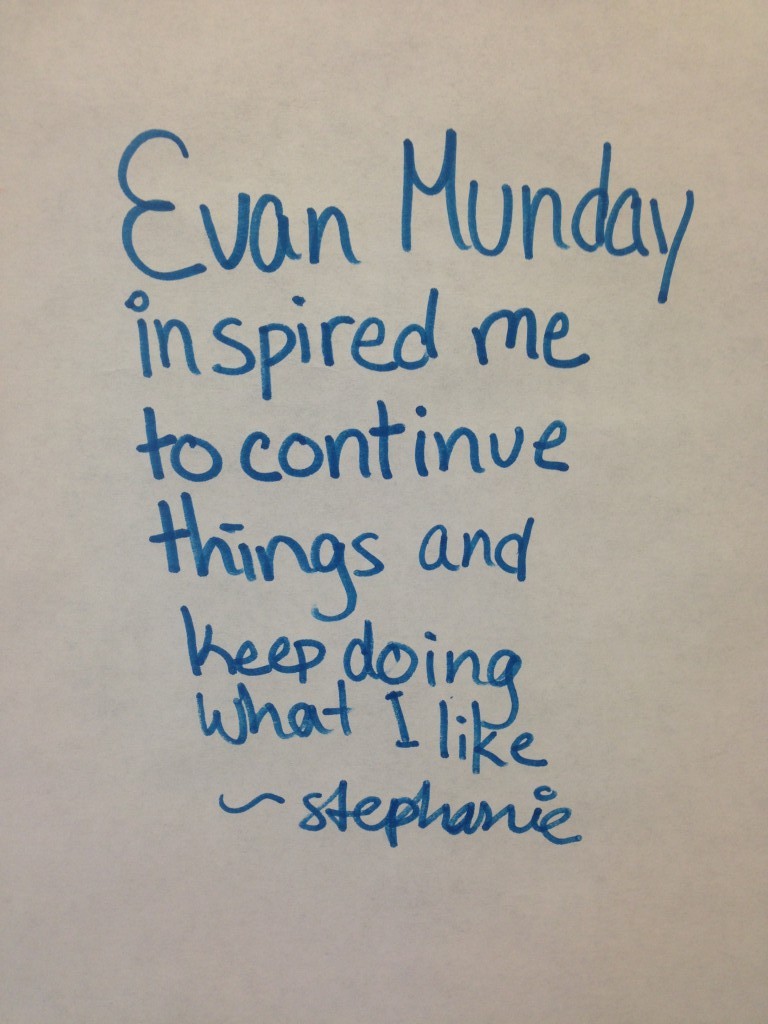 Evan Munday
inspired me
to continue
things and
keep doing
what I like
~ stephanie